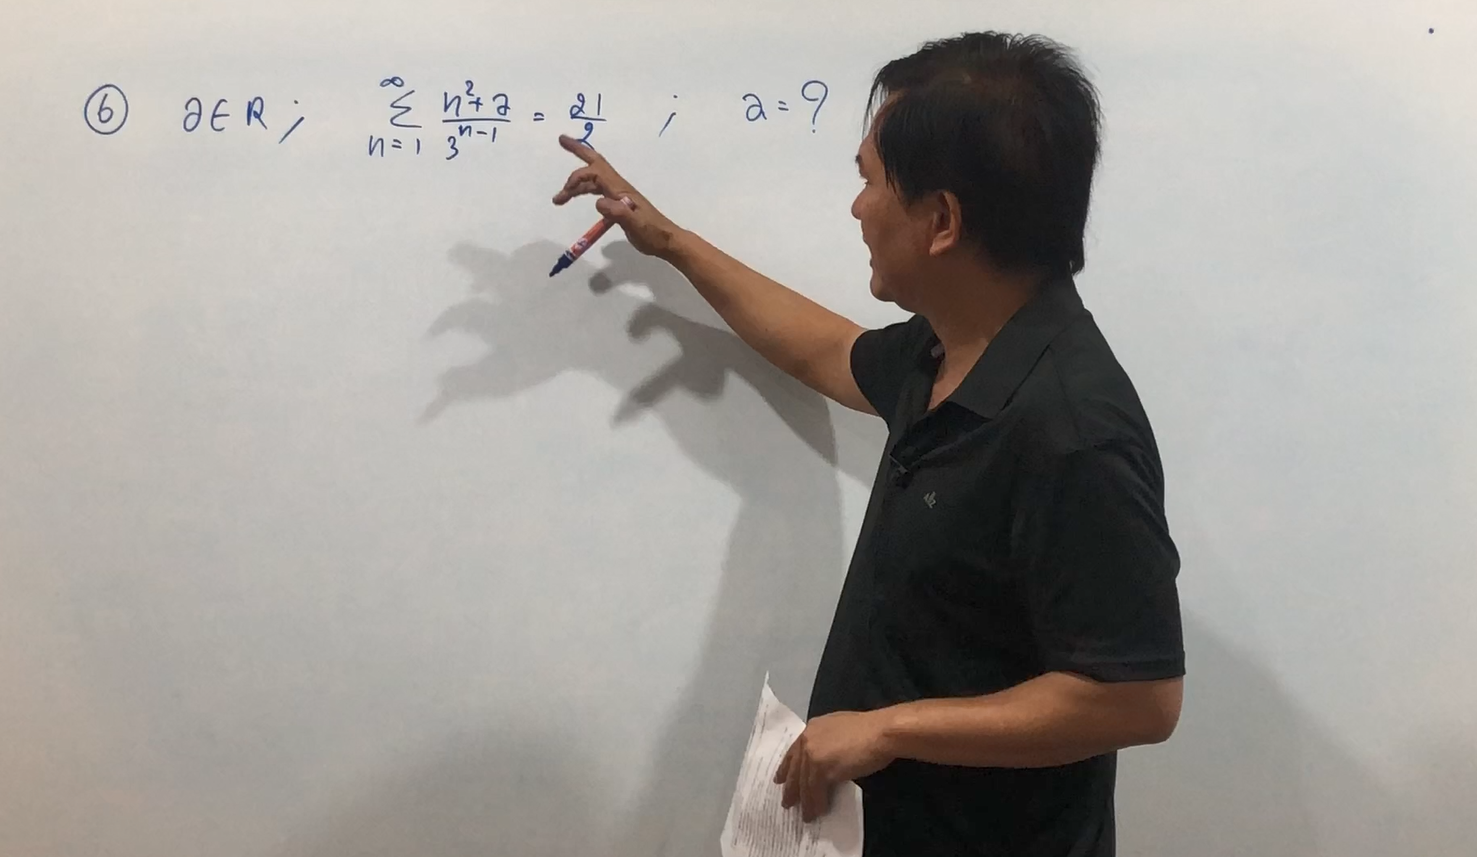 ⑥ a ∈ R ; \sum_{n=1}^{∞} \frac{n^2+a}{3^{n-1}} = \frac{21}{2} ; a = ?